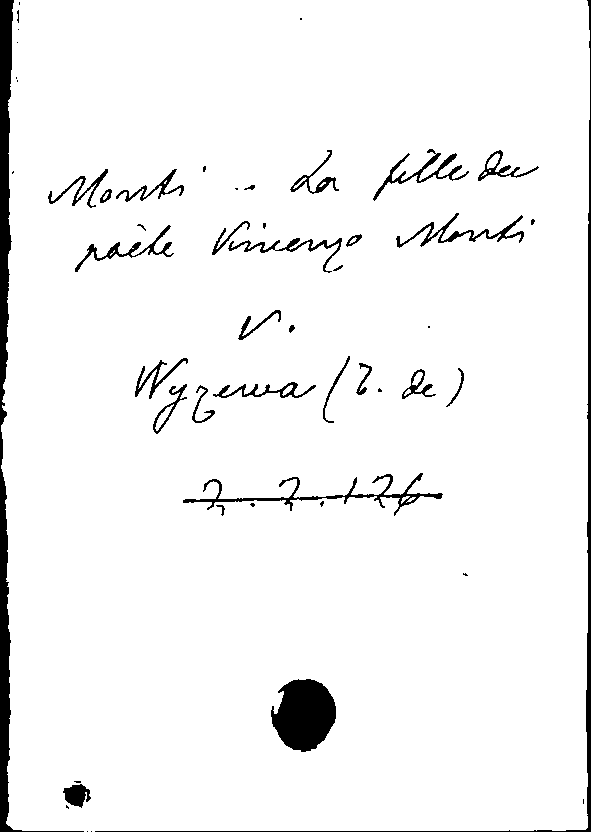 Monti .. La fille du
poète Vincenzo Monti
V.
Wyzewa (T. de)
2.2.126